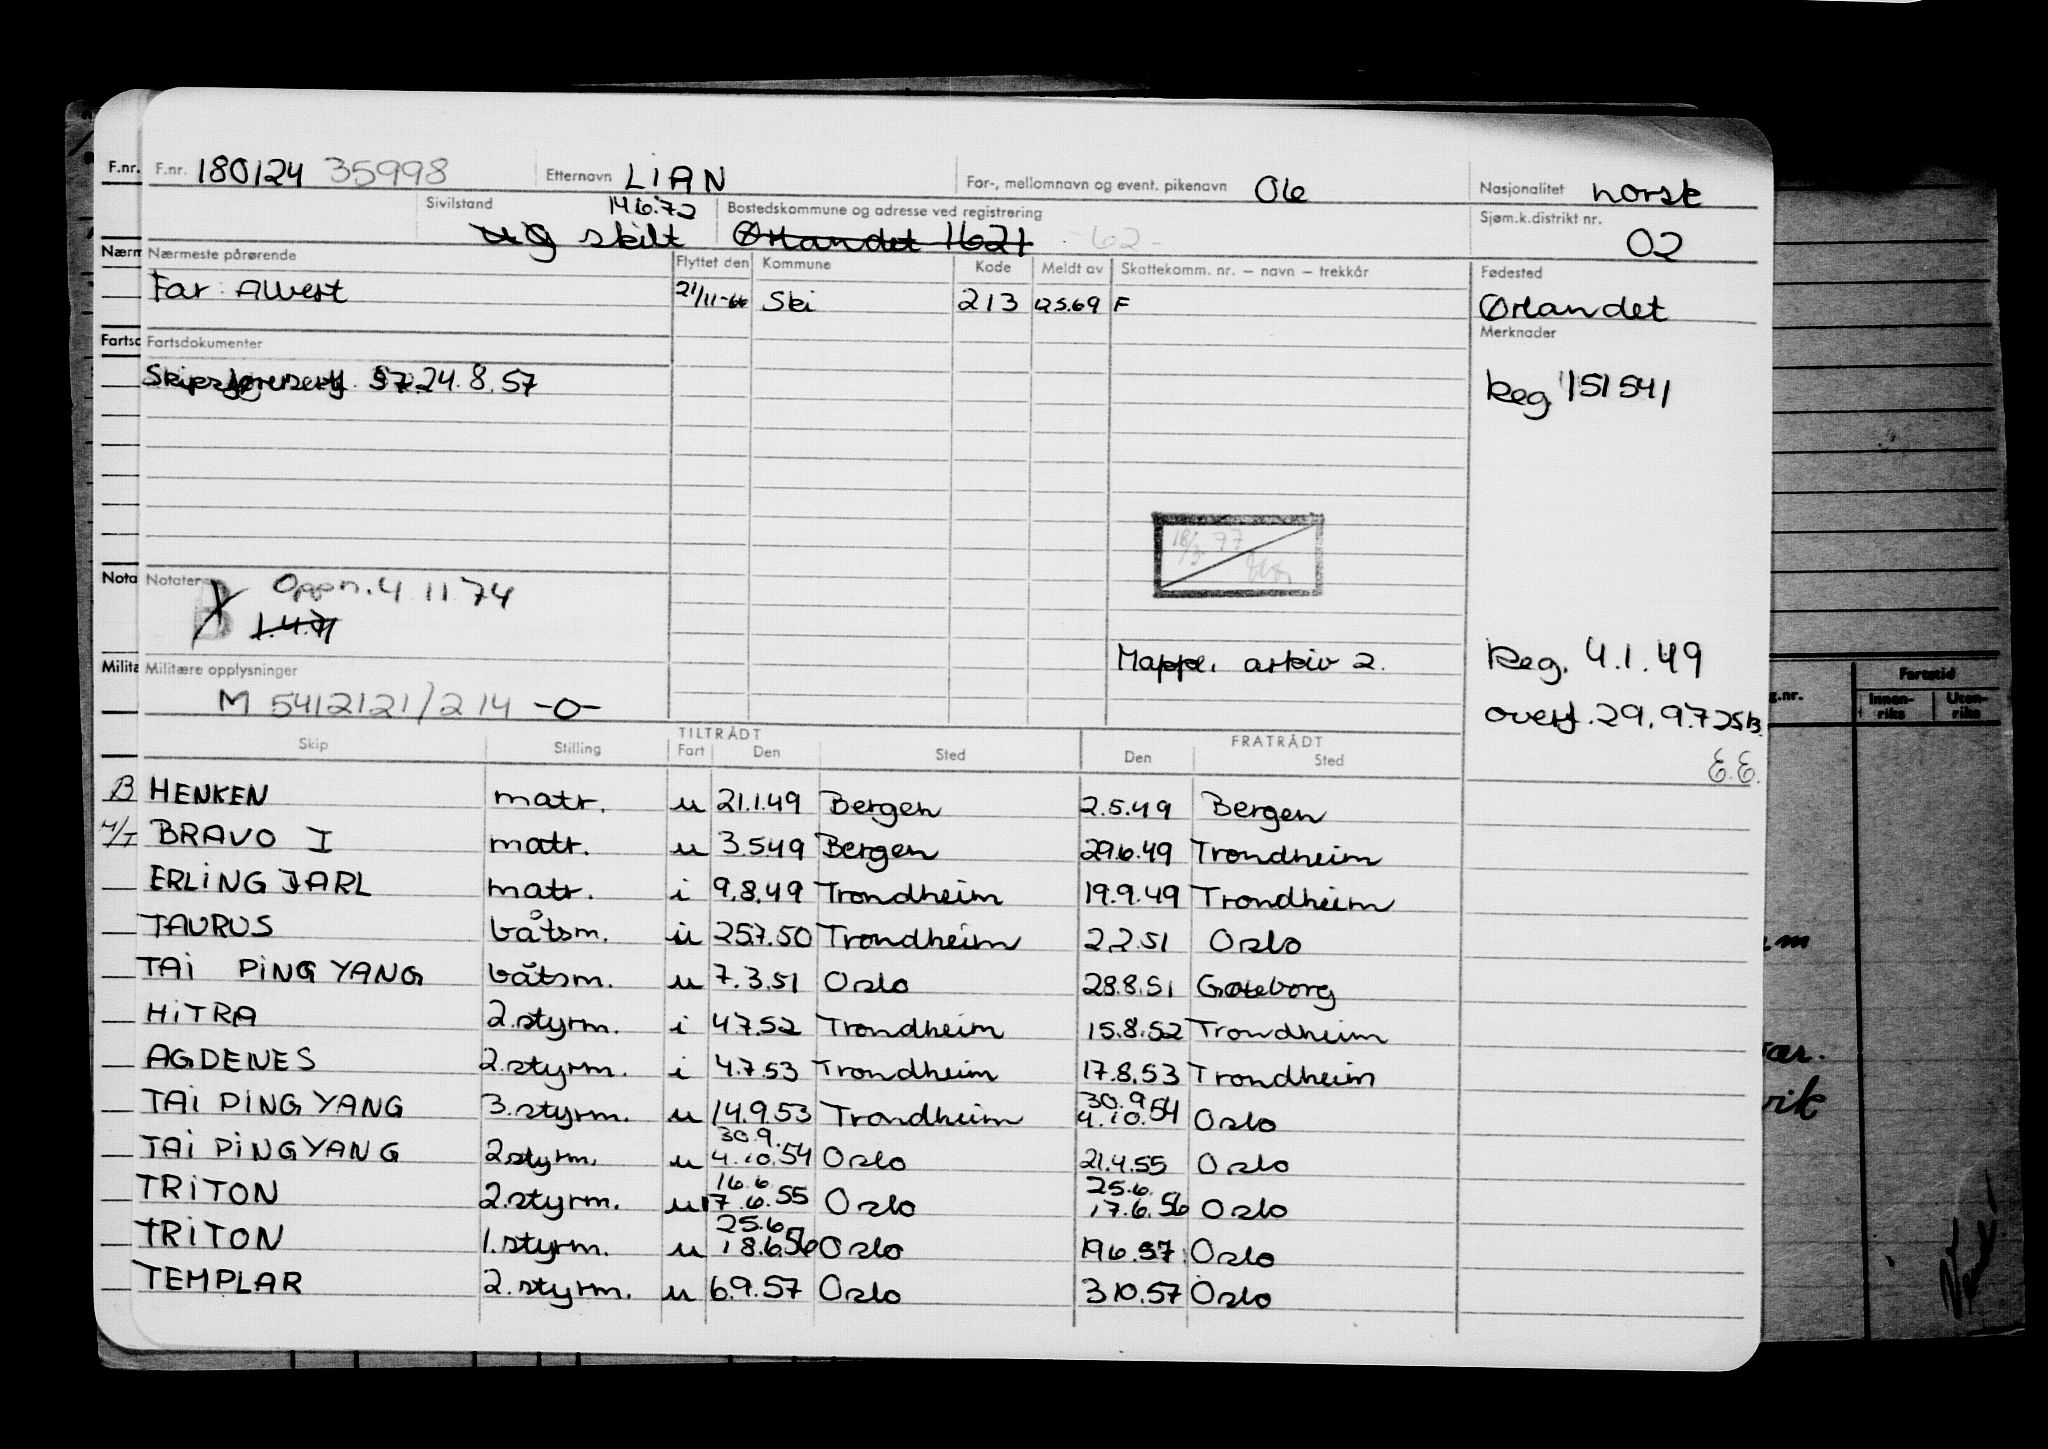 F.nr. F.nr. 180124 35998 Etternavn LIAN For-, mellomnavn og event. pikenavn Ole Nasjonalitet norsk
Sivilstand ug skilt 14.6.72 Bostedskommune og adresse ved registrering Ørlandet 1621 -62- Sjøm.k.distrikt nr. 02
Nærm Nærmeste pårørende Flyttet den Kommune Kode Meldt av Skattekomm. nr. – navn – trekkår Fødested
Far: Albert 21/11-66 Ski 213 12.5.69 F Ørlandet
Fartsd Fartsdokumenter Merknader
Skipsførersert. 57. 24.8.57 Reg. 151541
18/3 77
Nota Notater Oppn. 4 11 74
B 1.4.71
Mappe, arkiv 2. Reg. 4.1.49
Milita Militære opplysninger
M 5412121/214 -0- overf. 29.9.72 SB.
E.E.
TILTRÅDT FRATRÅDT
Skip Stilling Fart Den Sted Den Sted
B HENKEN matr. u 21.1.49 Bergen 2.5.49 Bergen
M/T BRAVO I matr. u 3.5.49 Bergen 29.6.49 Trondheim
ERLING JARL matr. i 9.8.49 Trondheim 19.9.49 Trondheim
TAURUS båtsm. u 25.7.50 Trondheim 2.2.51 Oslo
TAI PING YANG båtsm. u 7.3.51 Oslo 28.8.51 Gøteborg
HITRA 2.styrm. i 4.7.52 Trondheim 15.8.52 Trondheim
AGDENES 2.styrm. i 4.7.53 Trondheim 17.8.53 Trondheim
TAI PING YANG 3.styrm. u 14.9.53 Trondheim 30.9. 4.10.54 Oslo
TAI PING YANG 2.styrm. u 30.9. 4.10.54 Oslo 21.4.55 Oslo
TRITON 2.styrm. u 16.6. 17.6.55 Oslo 25.6. 17.6.56 Oslo
TRITON 1.styrm. u 25.6. 18.6.56 Oslo 19.6.57 Oslo
TEMPLAR 2.styrm. u 6.9.57 Oslo 3.10.57 Oslo
g.nr. Fartstid
Innen-riks Uten-riks
vik